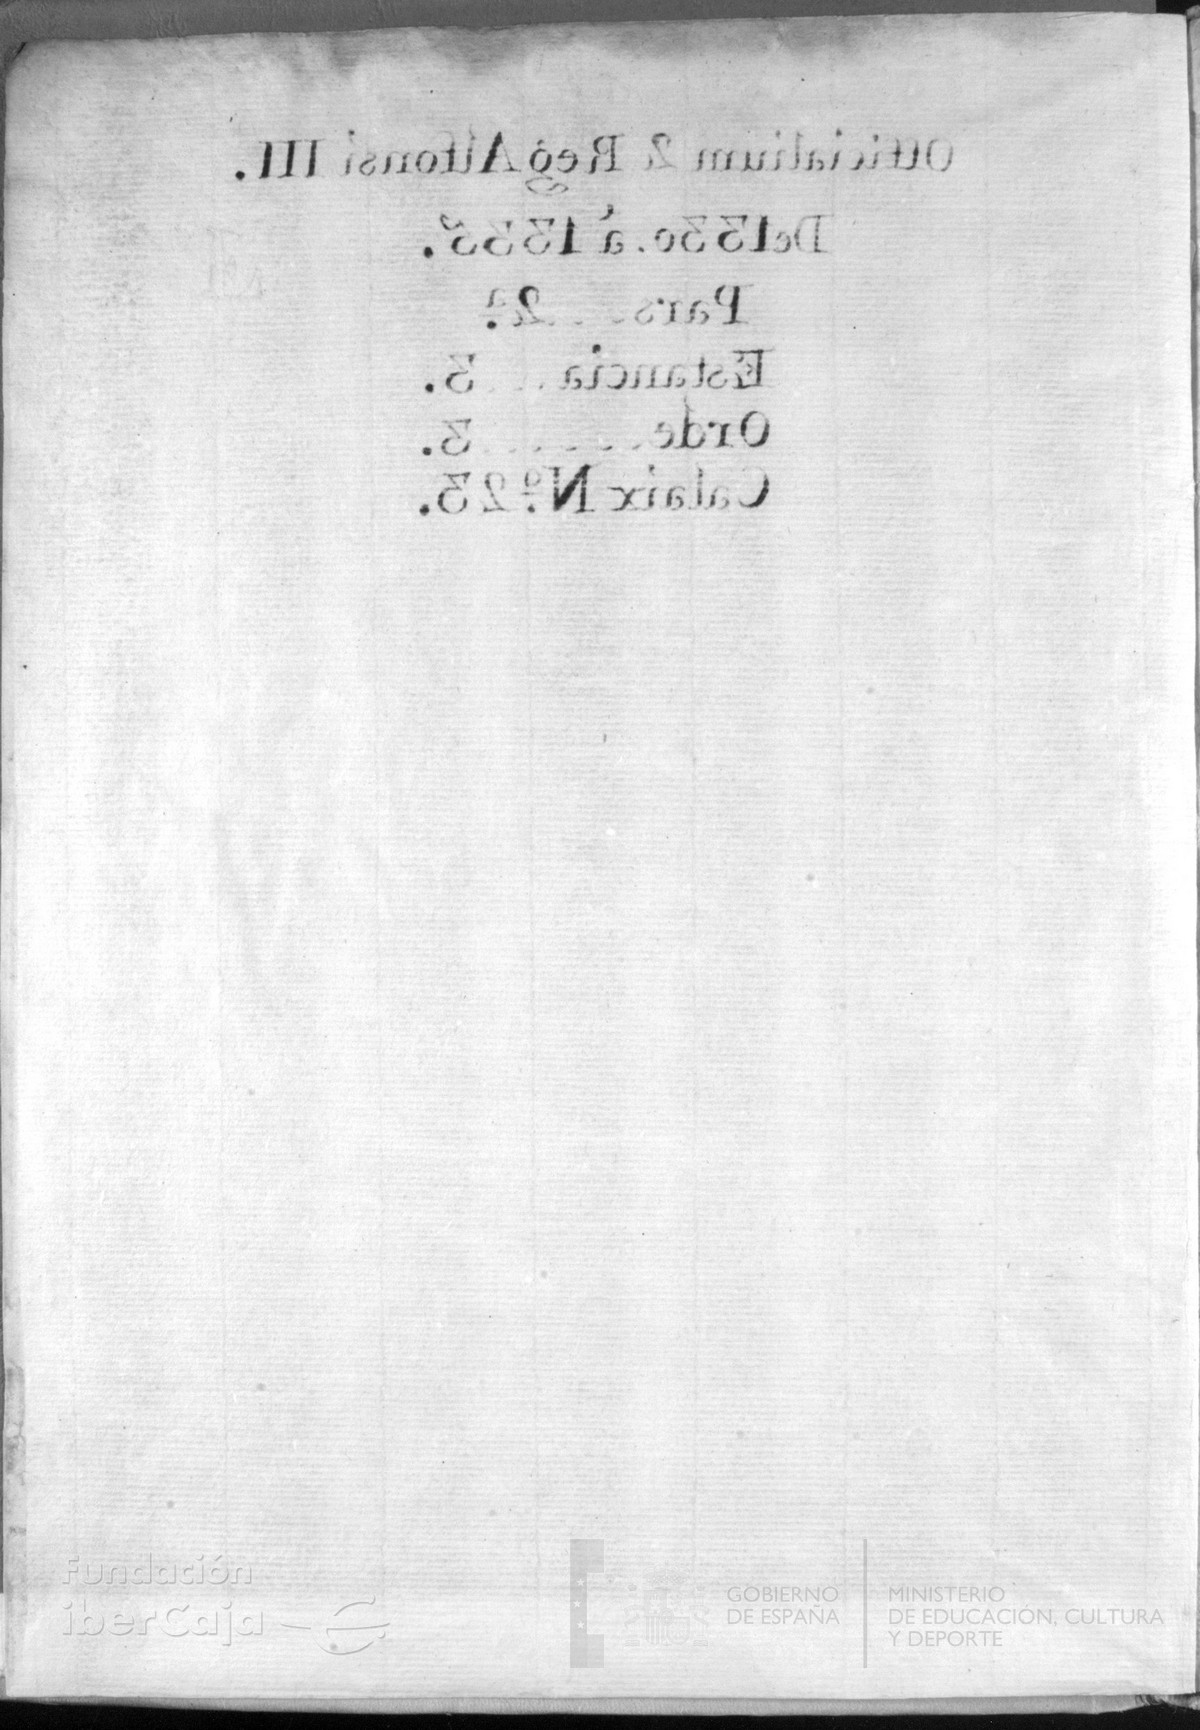 Officialium 2 Reg Alfonsi III.
De 1330. à 1335.
Pars . . . 2ª.
Estancia . . . 3.
Orde . . . . . . 3.
Calaix Nº. 23.
Fundación
iberCaja
GOBIERNO
DE ESPAÑA
MINISTERIO
DE EDUCACIÓN, CULTURA
Y DEPORTE